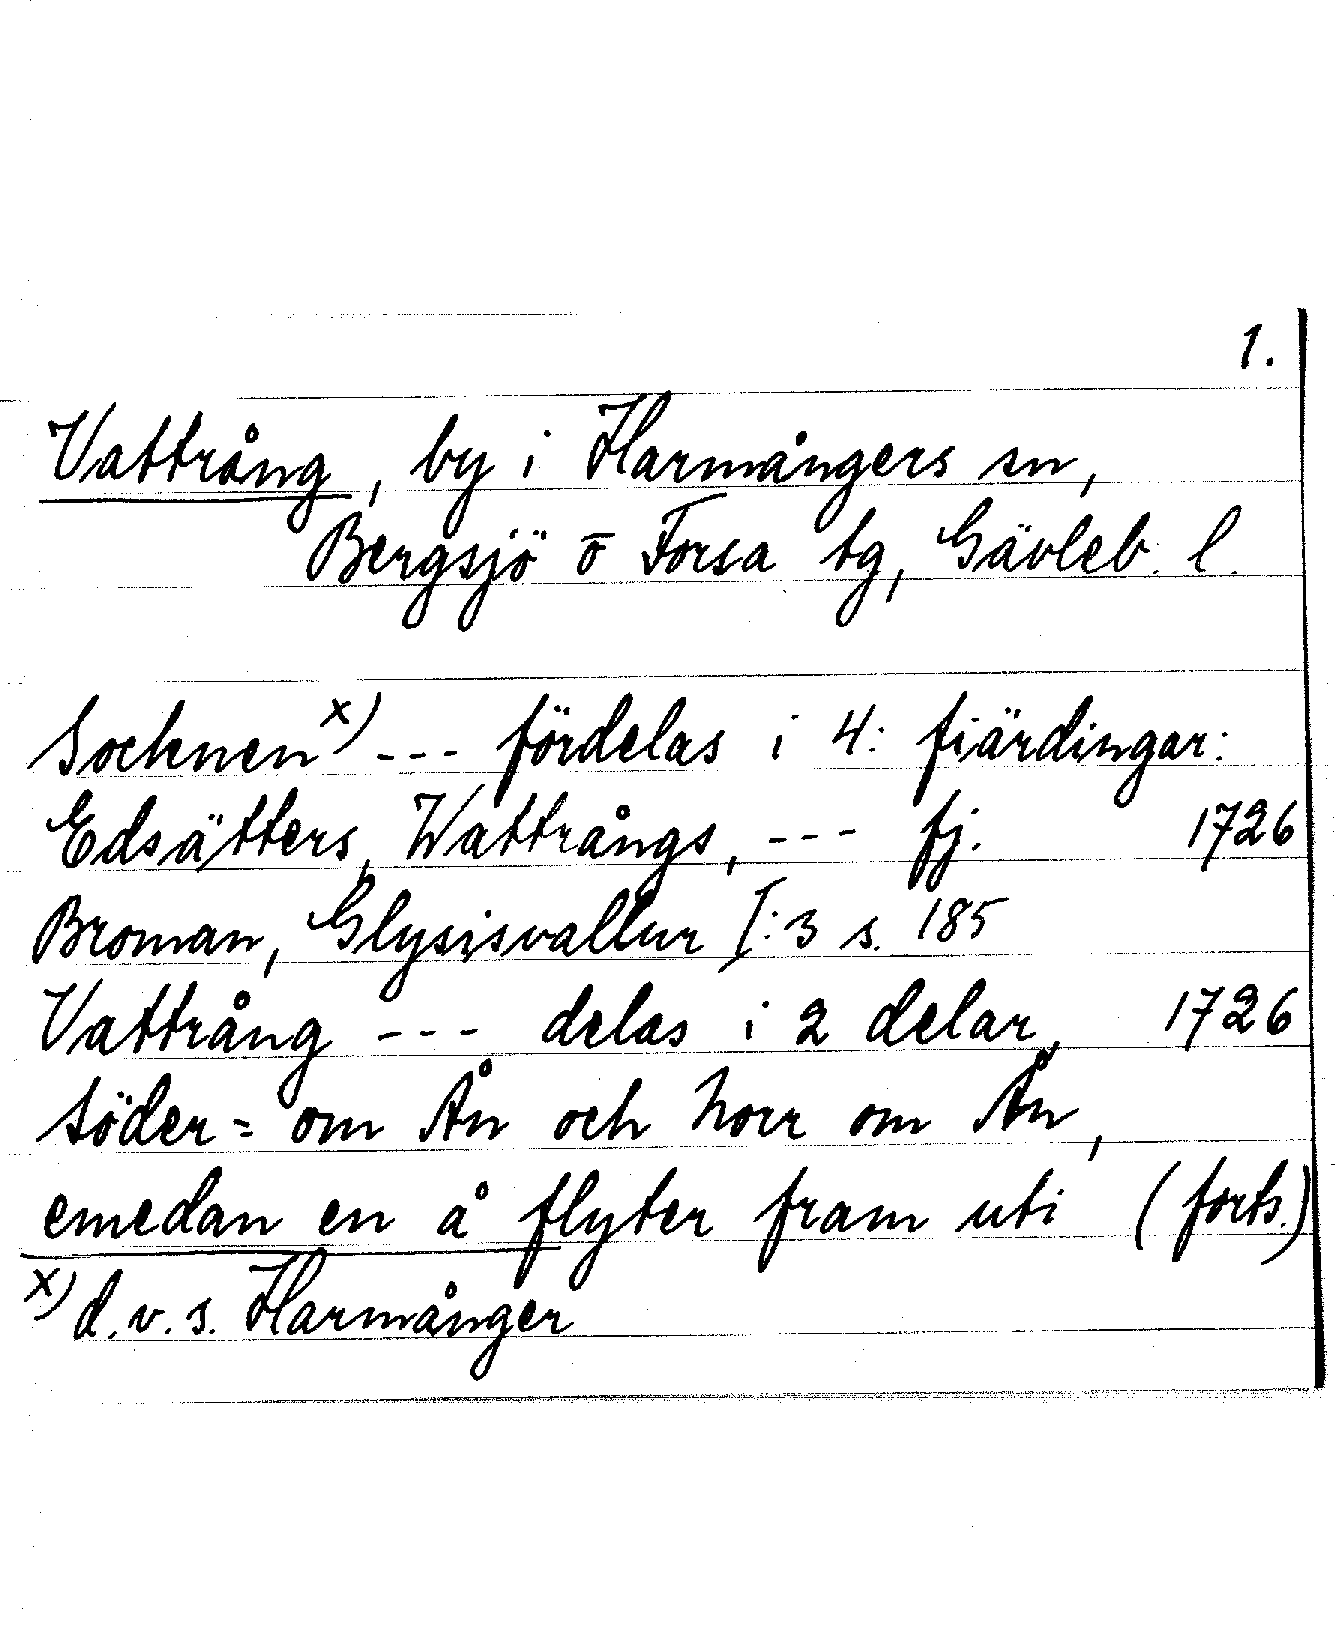 1.
Vattrång, by i Harmångers sn,
Bergsjö o Forsa tg, Gävleb. l.
Socknen x) --- fördelas i 4: fiärdingar:
Edsätters, Wattrångs, --- fj. 1726
Broman, Glysisvallur I:3 s. 185
Vattrång --- delas i 2 delar, 1726
söder= om Ån och Norr om Ån,
emedan en å flyter fram uti (forts.)
x) d.v.s. Harmånger